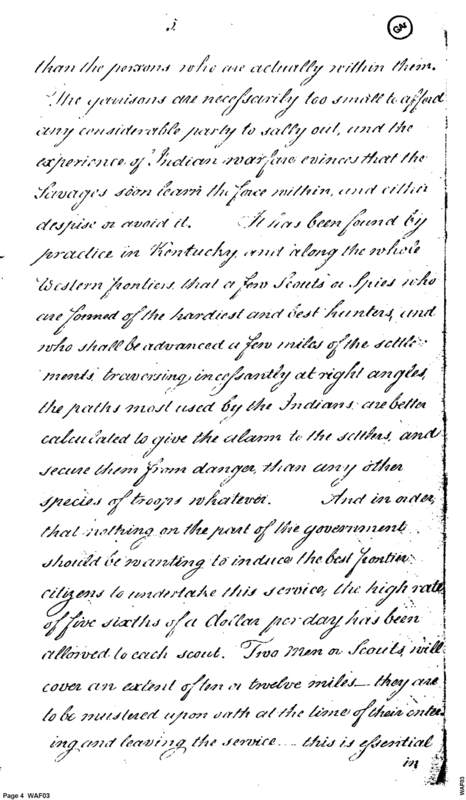 5.
GW
than the persons who are actually within them.
The garrisons are necessarily too small to afford
any considerable party to sally out, and the
experience of Indian warfare evinces that the
Savages soon learn the force within, and either
despise or avoid it. It has been found by
practice in Kentucky, and along the whole
Western frontiers, that a few Scouts or Spies who
are formed of the hardiest and best hunters, and
who shall be advanced a few miles of the settle=
ments, traversing incessantly at right angles,
the paths most used by the Indians, are better
calculated to give the alarm to the settlers, and
secure them from danger, than any other
species of troops whatever. And in order,
that nothing on the part of the government
should be wanting to induce the best frontier
citizens to undertake this service, the high rate
of five sixths of a dollar per day has been
allowed to each scout. Two Men or Scouts, will
cover an extent of ten or twelve miles — they are
to be mustered upon oath at the time of their enter=
ing and leaving the service — this is essential
in
Page 4 WAF03
WAF03